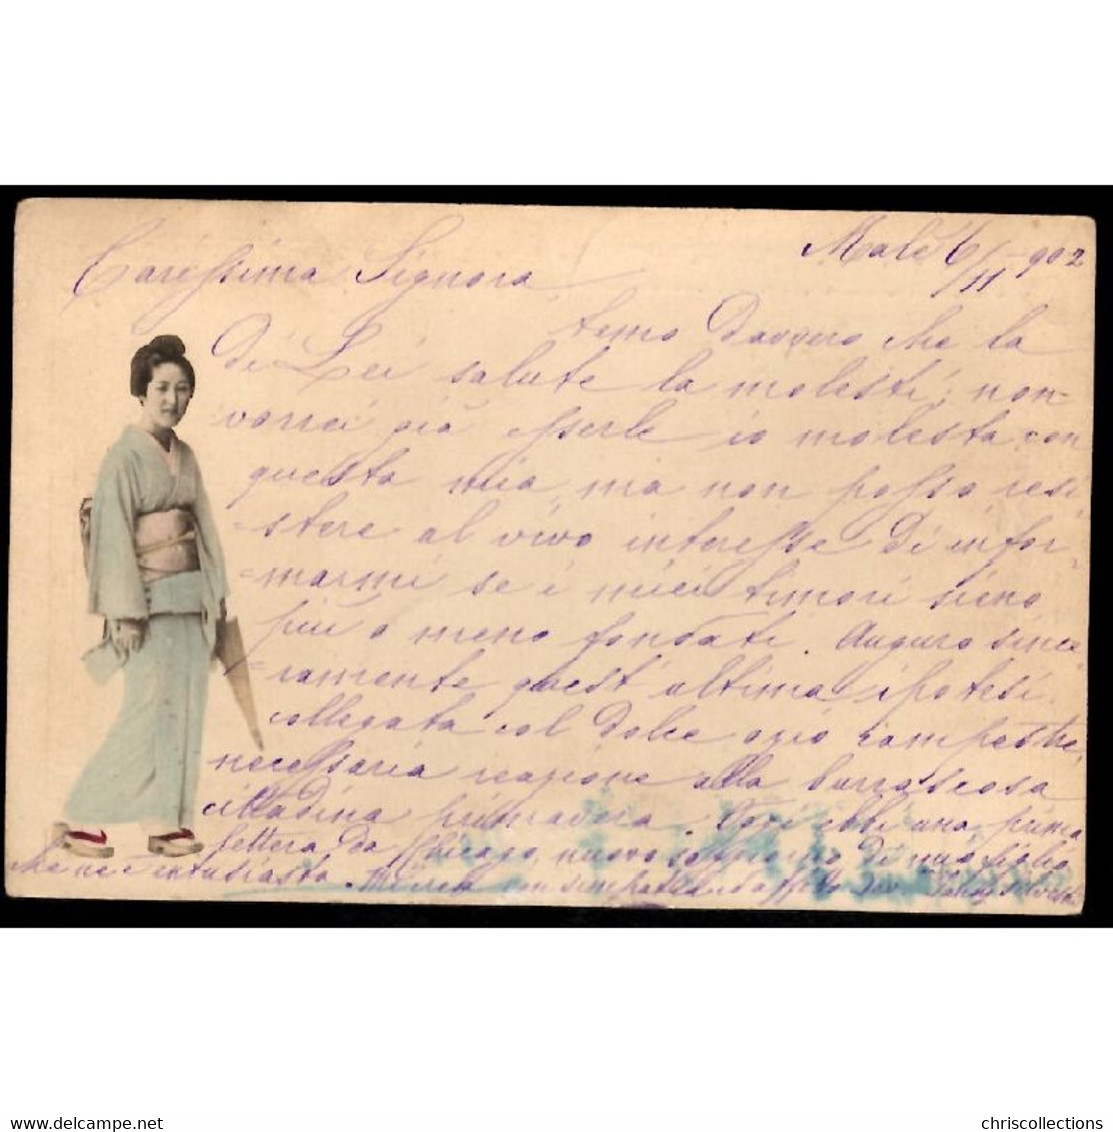 Malè 6/11 902
Carissima Signora,
temo davvero che la
di Lei salute la molesti; non
vorrei già esserle io molesta con
questa mia, ma non posso resi
-stere al vivo interesse di infor-
-marmi se i miei timori sieno
più o meno fondati. Auguro since
-ramente quest'ultima ipotesi
collegata col dolce ozio campestre,
necessaria reazione alla burrascosa
cittadina primavera. Ieri ebbi una prima
lettera da Chicago, nuovo soggiorno di mio figlio
che ne è entusiasta. Mi creda con simpatia ed affetto
delcampe.net
chriscollections